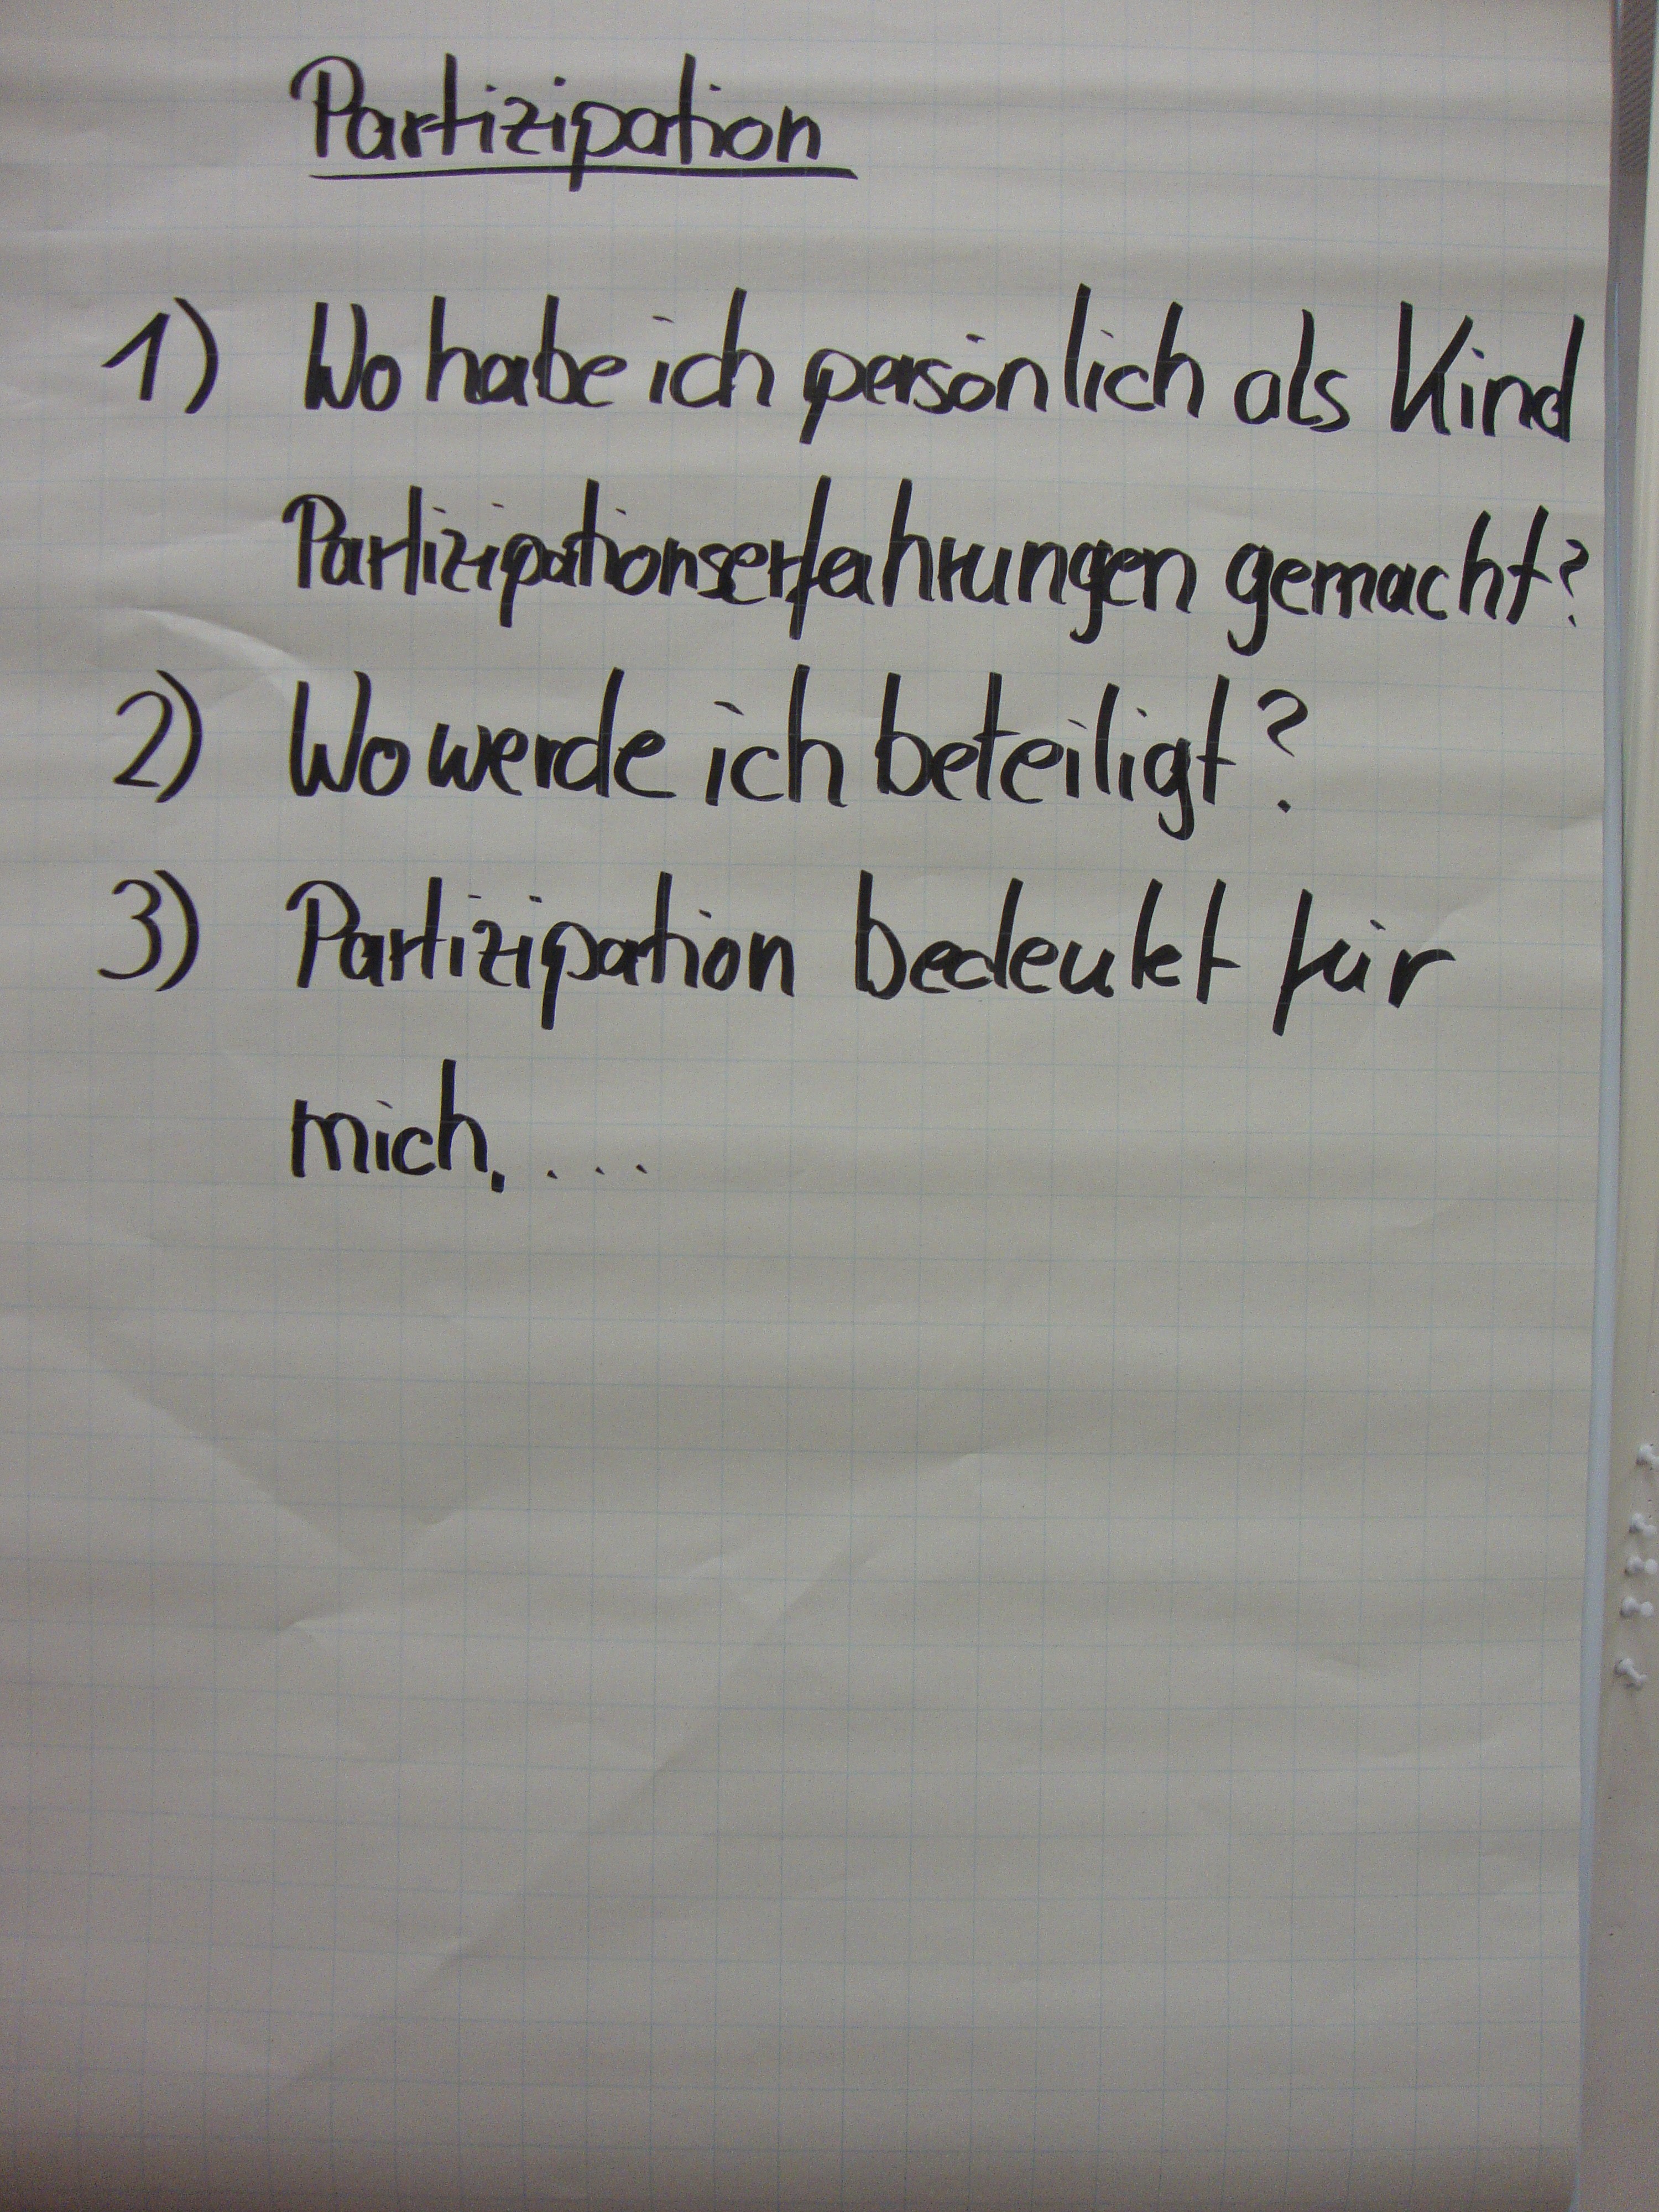 Partizipation
1) Wo habe ich persönlich als Kind
Partizipationserfahrungen gemacht?
2) Wo werde ich beteiligt?
3) Partizipation bedeutet für
mich, ....